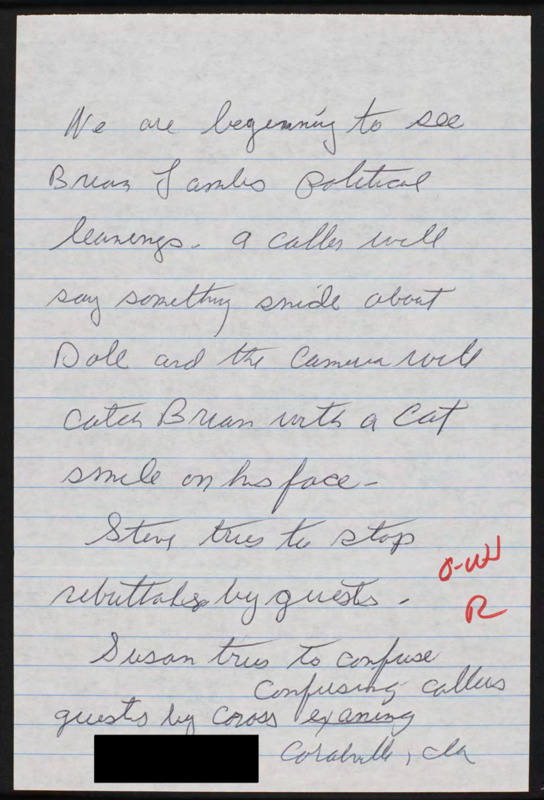 We are beginning to see
Brian Lambs political
leanings. a caller will
say something snide about
Dole and the camera will
catch Brian with a Cat
smile on his face -
Steve tries to stop
rebuttals by guests.
R
Susan tries to confuse
Confusing callers
guests by cross exaning
Coralville, Ia